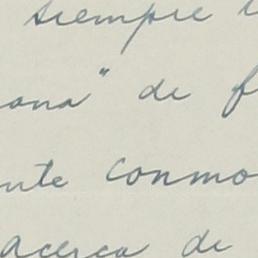 siempre
ona" de f
nte conmo
acerca de